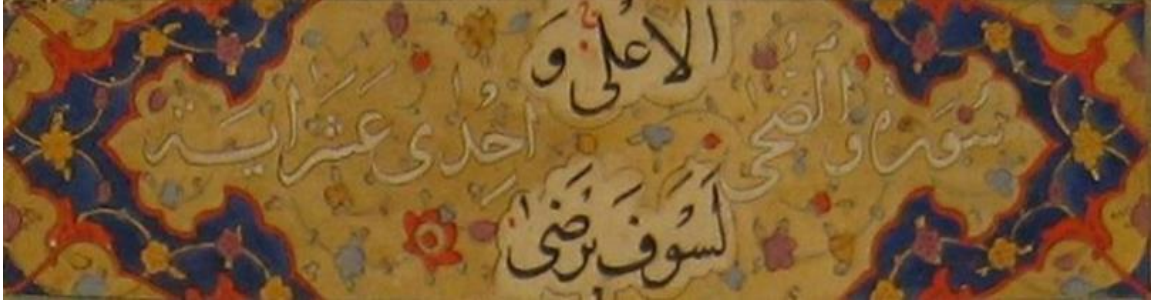 الاعلى و
سورة والضحى احدى عشر اية
لسوف يرضى